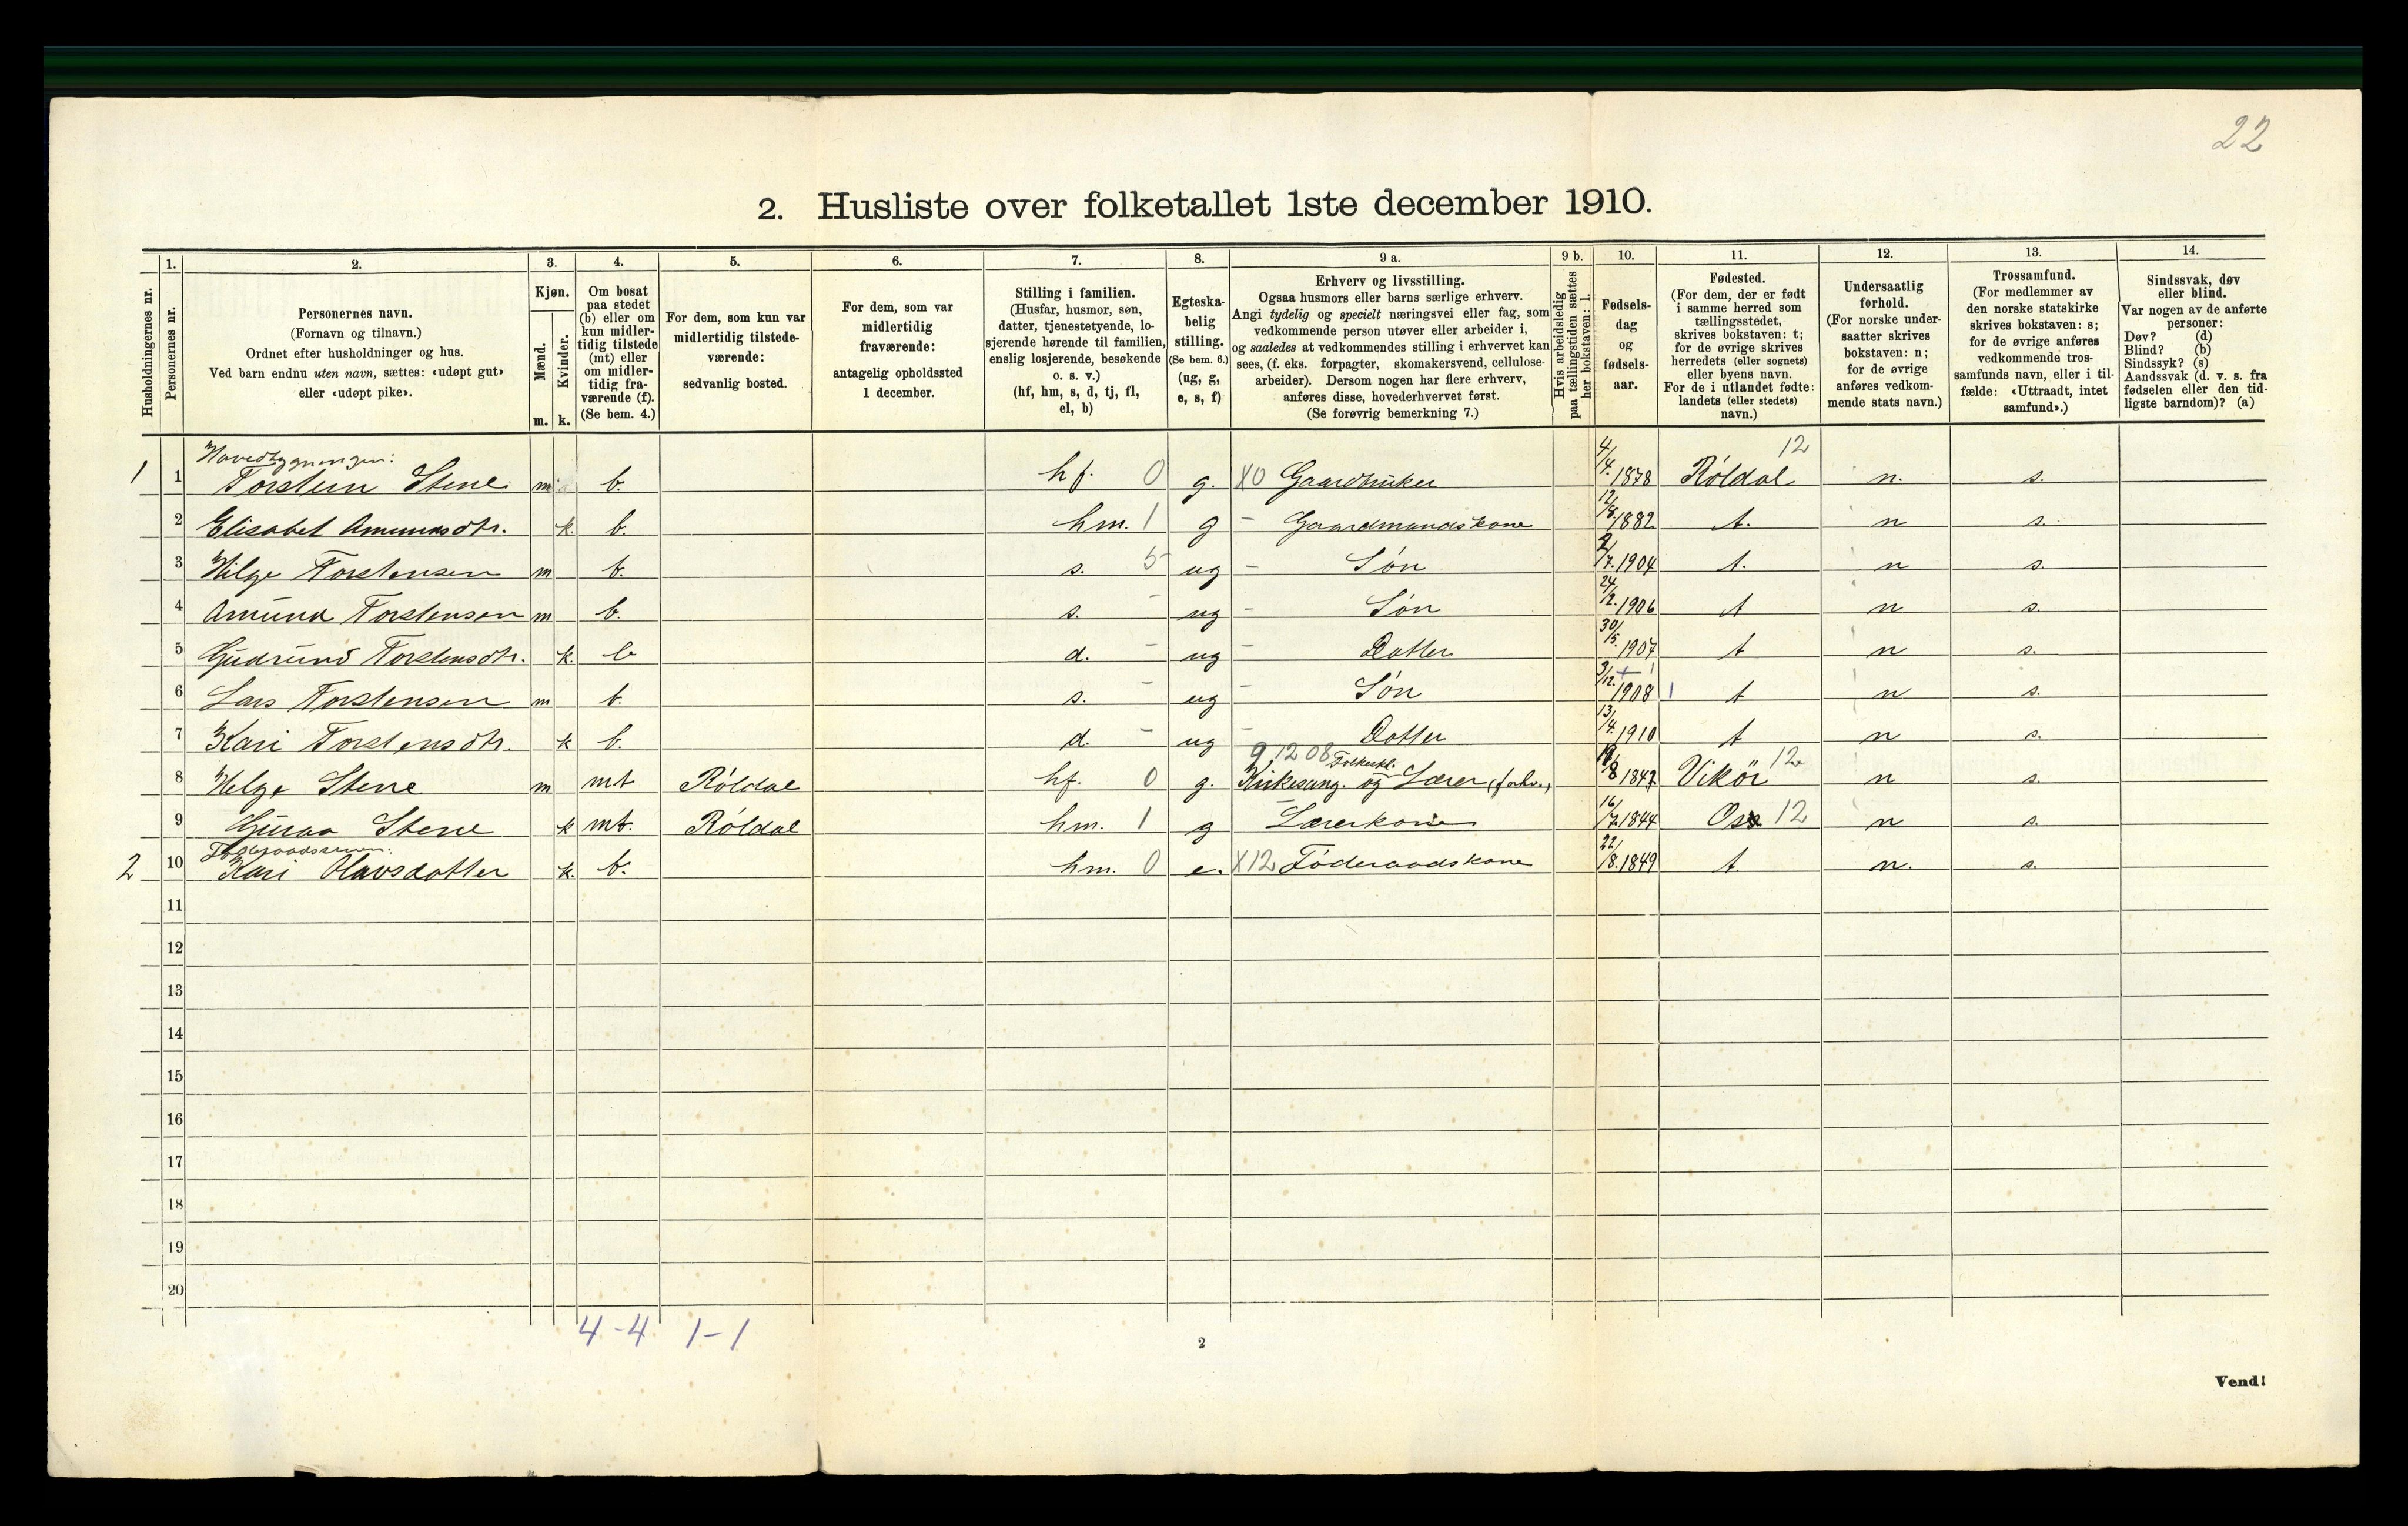 22
2. Husliste over folketallet 1ste december 1910.
Husholdningernes nr.
1.
Personernes nr.
2.
Personernes navn.
(Fornavn og tilnavn.)
Ordnet efter husholdninger og hus.
Ved barn endnu uten navn, sættes: «udøpt gut»
eller «udøpt pike».
3.
Kjøn.
Mænd.
Kvinder.
m. k.
4.
Om bosat
paa stedet
(b) eller om
kun midler-
tidig tilstede
(mt) eller
om midler-
tidig fra-
værende (f).
(Se bem. 4.)
5.
For dem, som kun var
midlertidig tilstede-
værende:
sedvanlig bosted.
6.
For dem, som var
midlertidig
fraværende:
antagelig opholdssted
1 december.
7.
Stilling i familien.
(Husfar, husmor, søn,
datter, tjenestetyende, lo-
sjerende hørende til familien,
enslig losjerende, besøkende
o. s. v.)
(hf, hm, s, d, tj, fl,
el, b)
8.
Egteska-
belig
stilling.
(Se bem. 6.)
(ug, g,
e, s, f)
9 a.
Erhverv og livsstilling.
Ogsaa husmors eller barns særlige erhverv.
Angi tydelig og specielt næringsvei eller fag, som
vedkommende person utøver eller arbeider i,
og saaledes at vedkommendes stilling i erhvervet kan
sees, (f. eks. forpagter, skomakersvend, cellulose-
arbeider). Dersom nogen har flere erhverv,
anføres disse, hovederhvervet først.
(Se forøvrig bemerkning 7.)
9 b.
Hvis arbeidsledig
paa tællingstiden sættes
her bokstaven: l.
10.
Fødsels-
dag
og
fødsels-
aar.
11.
Fødested.
(For dem, der er født
i samme herred som
tællingsstedet,
skrives bokstaven: t;
for de øvrige skrives
herredets (eller sognets)
eller byens navn.
For de i utlandet fødte:
landets (eller stedets)
navn.)
12.
Undersaatlig
forhold.
(For norske under-
saatter skrives
bokstaven: n;
for de øvrige
anføres vedkom-
mende stats navn.)
13.
Trossamfund.
(For medlemmer av
den norske statskirke
skrives bokstaven: s;
for de øvrige anføres
vedkommende tros-
samfunds navn, eller i til-
fælde: «Uttraadt, intet
samfund».)
14.
Sindssvak, døv
eller blind.
Var nogen av de anførte
personer:
Døv? (d)
Blind? (b)
Sindssyk? (s)
Aandssvak (d. v. s. fra
fødselen eller den tid-
ligste barndom)? (a)
Hovedbygningen:
1 1 Torstein Stene m b. hf. 0 g. X0 Gaardbruker 4/4. 1878 Røldal 12 n. s.
2 Elisabet Amundsdtr. k. b. hm. 1 g - Gaardmandskone 12/8. 1882 t. n s.
3 Helge Torstensen m b. s. 5 ug - Søn 2/7. 1904 t. n s.
4 Amund Torstensen m b. s. - ug - Søn 24/2. 1906 t n s.
5 Gudrund Torstensdtr. k. b d. - ug - Dotter 30/5. 1907 t n s.
6 Lars Torstensen m b. s. - ug - Søn 3/12. 1908 1 t n s.
7 Kari Torstensdtr. k b. d. - ug - Dotter 13/4. 1910 t n s.
9,12 08 Folkeskl.
8 Helge Stene m mt Røldal hf. 0 g. Kirkesang. og Lærer (forhv.) /8 1842 Vikör 12 n s.
9 Guroa Stene k mt. Røldal hm. 1 g - Lærerkone 16/7. 1844 Os 12 n s.
2 10 Kari Olavsdotter k. b. hm. 0 e. X12 Føderaadskone 22/8. 1849 t. n. s.
11
12
13
14
15
16
17
18
19
20
4-4 1-1
2
Vend!